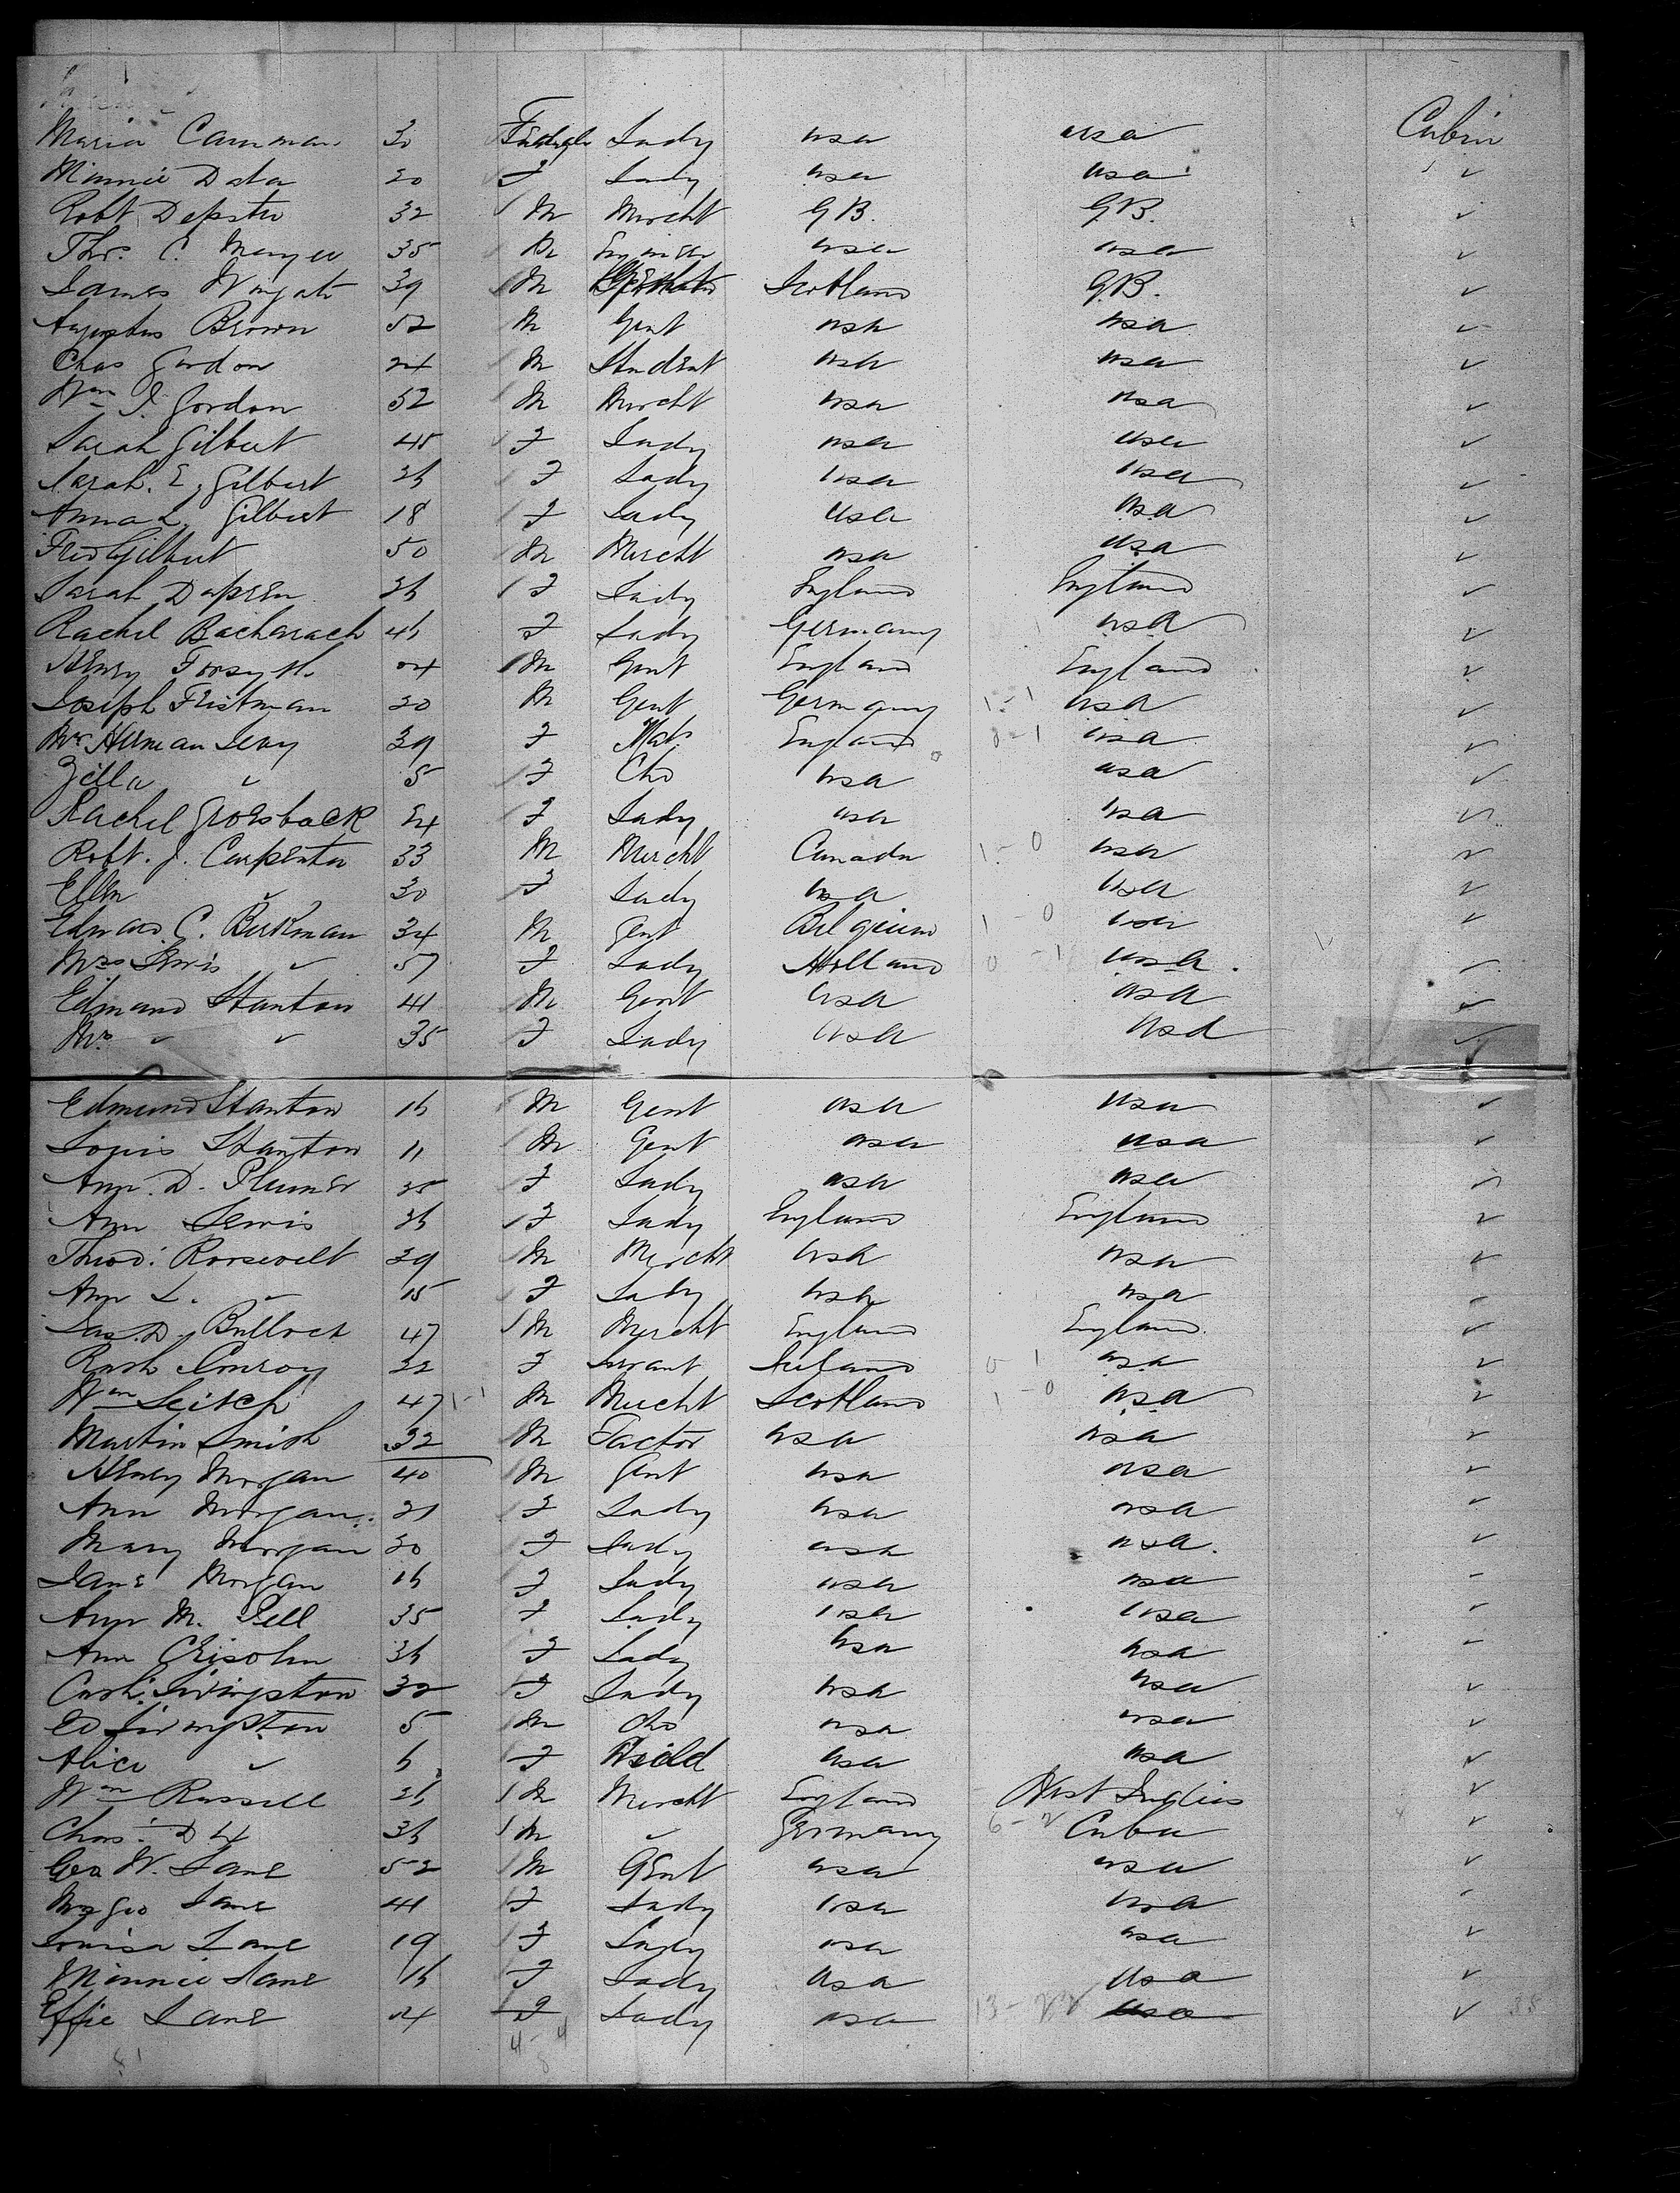 Maria Camman 30 Lady usa usa Cabin
Minnie Data 20 F Lady usa usa ✓
Robt 32 M Mercht G.B. G.B. ✓
Thos. C. 35 M Engineer usa usa ✓
James Wingate 39 M Scotland G.B. ✓
Augustus Brown 52 M Gent usa usa ✓
Chas Gordon 24 M Student usa usa ✓
Wm J. Gordon 52 M Mercht usa usa ✓
Sarah Gilbert 45 F Lady usa usa ✓
Sarah. E. Gilbert 26 F Lady usa usa ✓
Anna L. Gilbert 18 F Lady usa usa ✓
Fred Gilbert 50 M Mercht usa usa ✓
Sarah 26 F Lady England England ✓
Rachel Bacharach 46 F Lady Germany usa ✓
Henry Forsyth 24 M Gent England England ✓
Joseph Fristman 20 M Gent Germany 1-1 usa ✓
Mrs Herman Levy 39 F England 0-1 usa ✓
Zilla ✓ 5 F Chd usa usa ✓
Rachel Groesback 24 F Lady usa usa ✓
Robt. J. Carpenter 33 M Mercht Canada 1-0 usa ✓
Ellen ✓ 30 F Lady usa usa ✓
Edward C. Berkman 34 M Gent Belgium 1-0 usa ✓
Mrs Lewis ✓ 57 F Lady Holland 0-1 usa. ✓
Edmand Stanton 41 M Gent usa usa ✓
Mrs ✓ ✓ 35 F Lady usa usa ✓
Edmund Stanton 16 M Gent usa usa ✓
Louis Stanton 11 M Gent usa usa ✓
Ann. D. Plumer 35 F Lady usa usa ✓
Ann Lewis 36 F Lady England England ✓
Theod: Roosevelt 39 M Mercht usa usa ✓
Ann L. ✓ 15 F Lady usa usa ✓
Jas. D. Bulloch 47 M Mercht England England. ✓
Conroy 22 F Servant Ireland 0-1 usa ✓
Wm Leitch 47 1-1 M Mercht Scotland 1-0 usa ✓
Martin Smith 32 M Factor usa usa ✓
Henry Morgan 40 M Gent usa usa ✓
Ann Morgan 21 F Lady usa usa ✓
Mary Morgan 20 F Lady usa usa. ✓
Jane Morgan 16 F Lady usa usa
Ann M. Pell 35 F Lady usa usa
Ann Chisolm 36 F Lady usa usa
Cath. Livingston 32 F Lady usa usa ✓
Ed Livingston 5 M Chd usa usa ✓
Alice ✓ 6 F usa usa ✓
Wm Russell 26 M Mercht England West Indies ✓
Chas. 36 M ✓ Germany 6-2 Cuba ✓
Geo W. Lane 52 M Gent usa usa ✓
Mrs Geo Lane 41 F Lady usa usa
Louisa Lane 19 F Lady usa usa ✓
Minnie Lane 16 F Lady usa usa ✓
Effie Lane 24 F Lady usa 13-22 usa ✓ 38
81 4-4
8